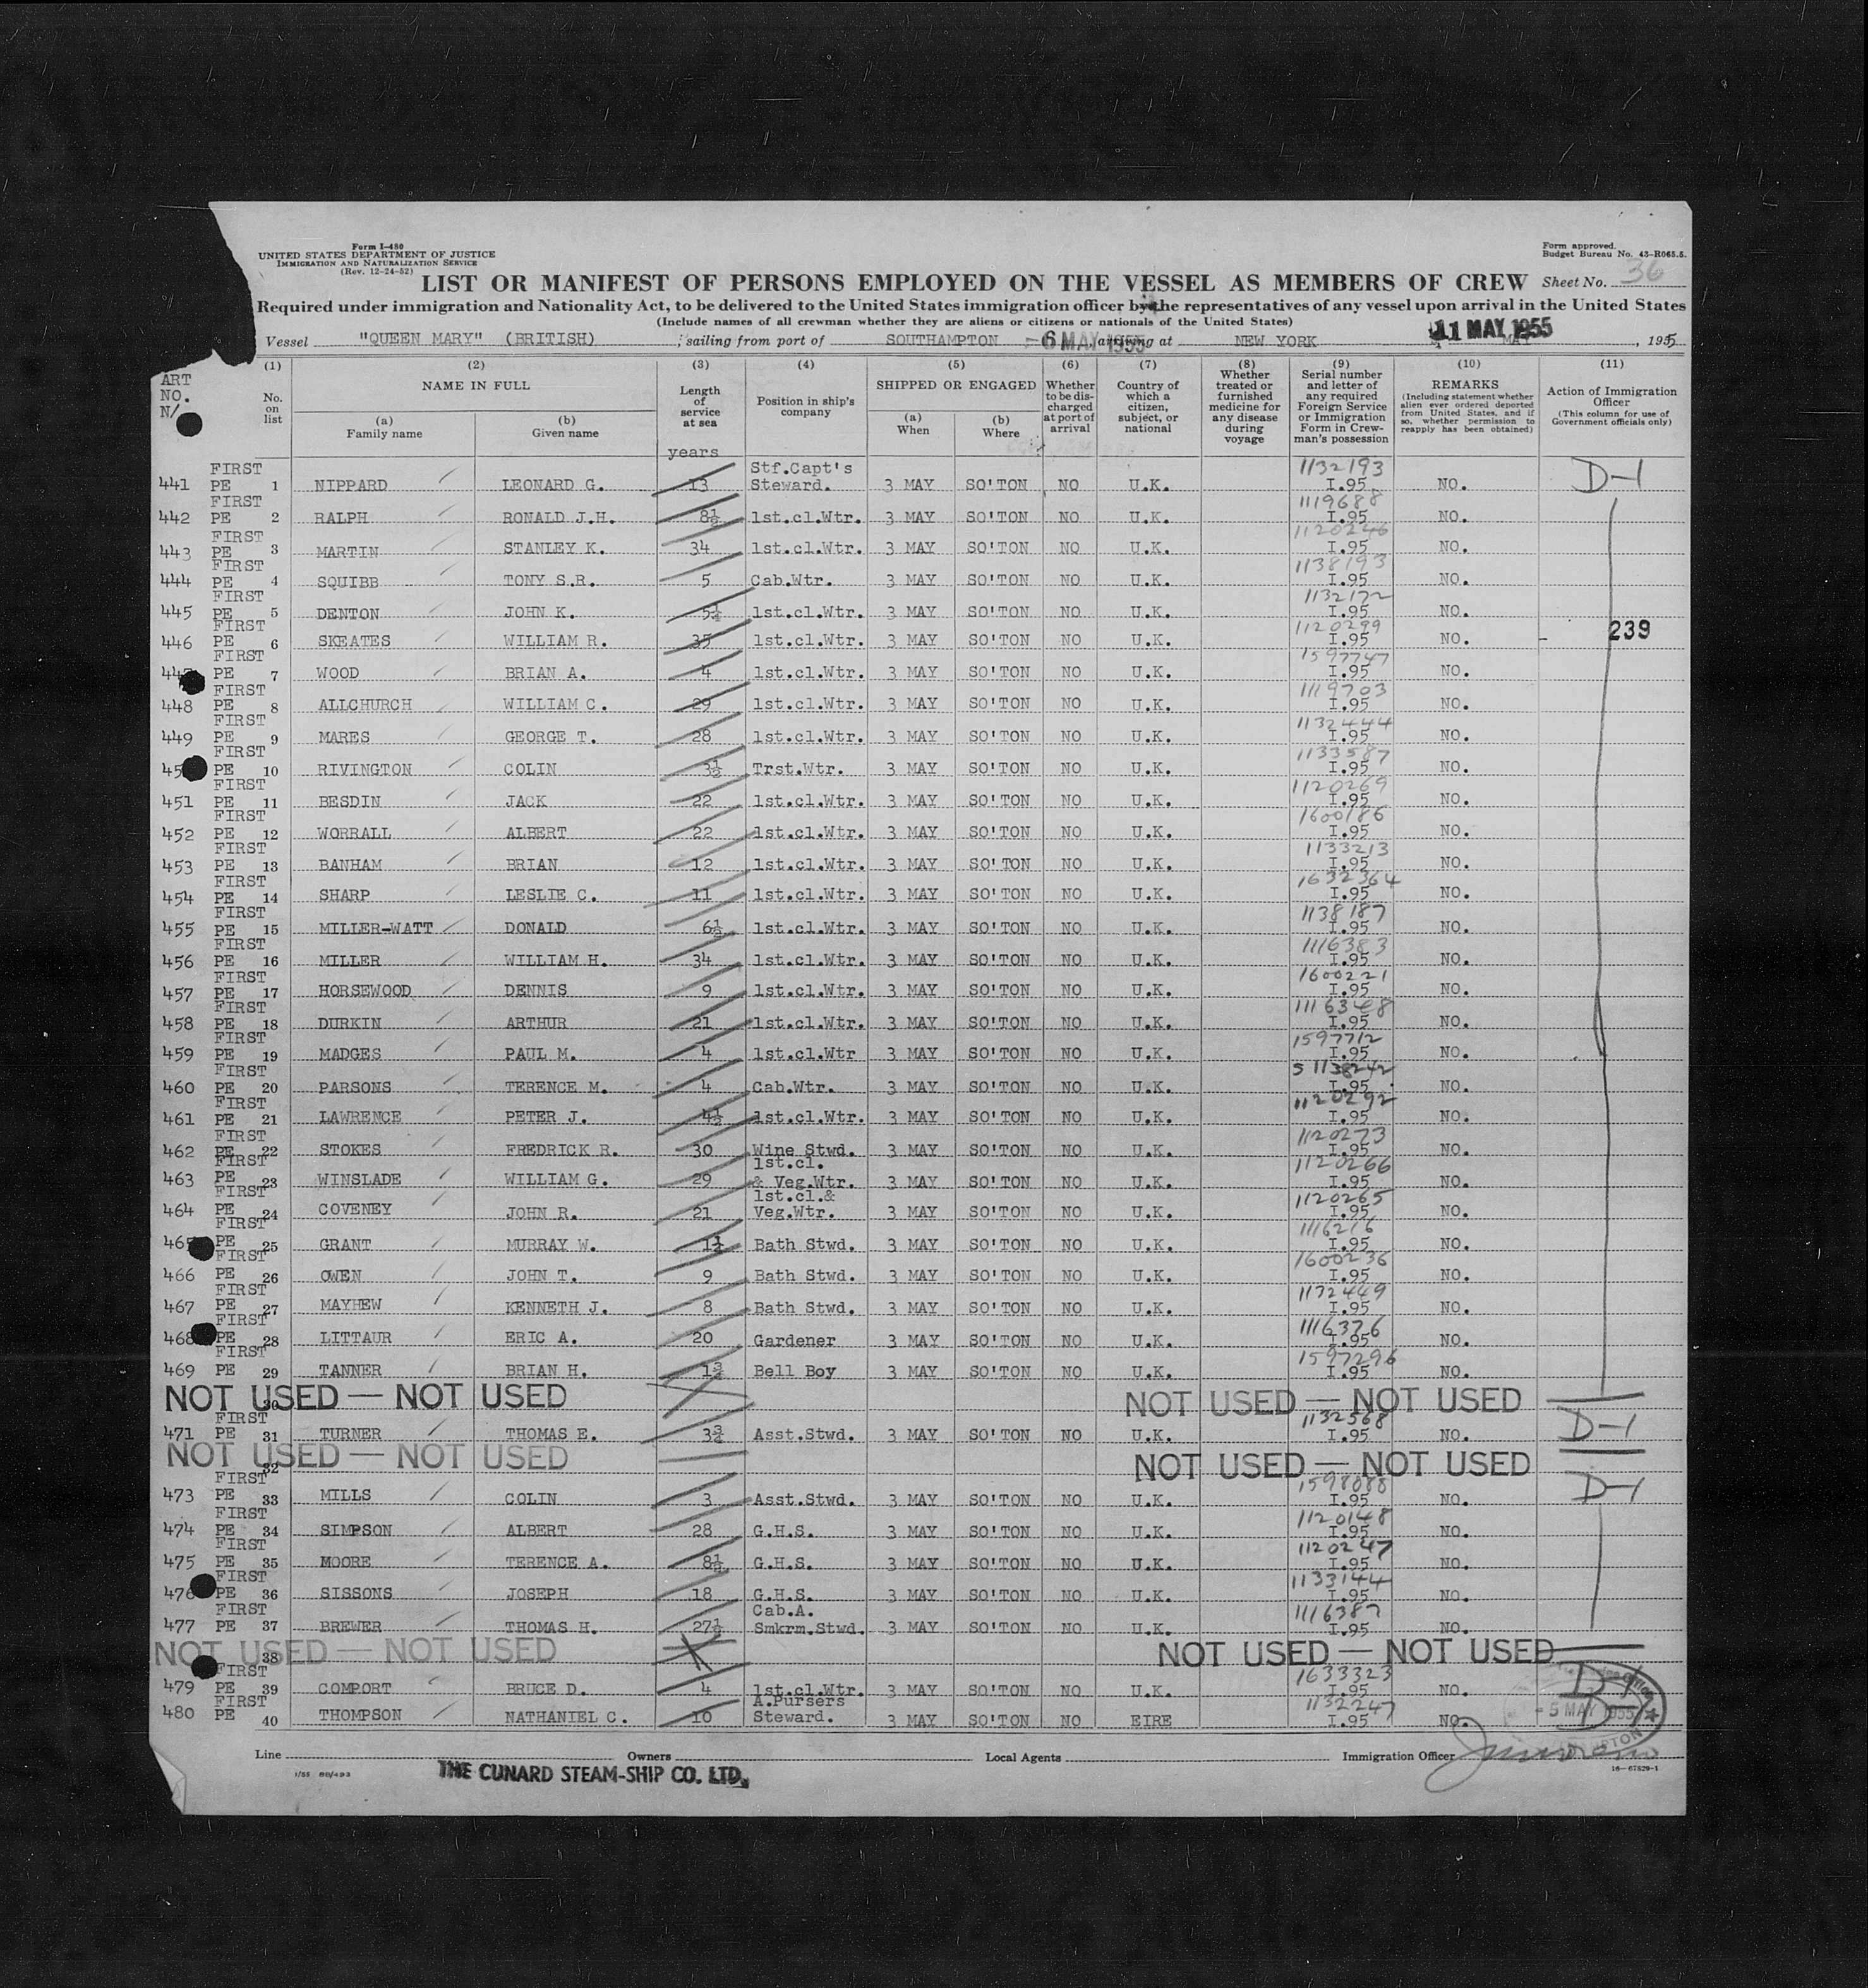 Form I-480
UNITED STATES DEPARTMENT OF JUSTICE
IMMIGRATION AND NATURALIZATION SERVICE
(Rev. 12-24-52)
Form approved.
Budget Bureau No. 43-R065.5.
LIST OR MANIFEST OF PERSONS EMPLOYED ON THE VESSEL AS MEMBERS OF CREW Sheet No. 36
Required under immigration and Nationality Act, to be delivered to the United States immigration officer by the representatives of any vessel upon arrival in the United States
(Include names of all crewman whether they are aliens or citizens or nationals of the United States)
Vessel "QUEEN MARY" (BRITISH) sailing from port of SOUTHAMPTON -6 MAY 1955 arriving at NEW YORK 11 MAY 1955, 1955
ART NO. N/
(1) No. on list
(2) NAME IN FULL (a) Family name (b) Given name
(3) Length of service at sea years
(4) Position in ship's company
(5) SHIPPED OR ENGAGED (a) When (b) Where
(6) Whether to be discharged at port of arrival
(7) Country of which a citizen, subject, or national
(8) Whether treated or furnished medicine for any disease during voyage
(9) Serial number and letter of any required Foreign Service or Immigration Form in Crewman's possession
(10) REMARKS (Including statement whether alien ever ordered deported from United States, and if so, whether permission to reapply has been obtained)
(11) Action of Immigration Officer (This column for use of Government officials only)
441 FIRST PE 1 NIPPARD LEONARD G. 13 Stf.Capt's Steward. 3 MAY SO'TON NO U.K. 1132193 I.95 NO. D-1
442 FIRST PE 2 RALPH RONALD J.H. 8½ 1st.cl.Wtr. 3 MAY SO'TON NO U.K. 1119688 I.95 NO.
443 FIRST PE 3 MARTIN STANLEY K. 34 1st.cl.Wtr. 3 MAY SO'TON NO U.K. 1120246 I.95 NO.
444 FIRST PE 4 SQUIBB TONY S.R. 5 Cab.Wtr. 3 MAY SO'TON NO U.K. 1138193 I.95 NO.
445 FIRST PE 5 DENTON JOHN K. 5¼ 1st.cl.Wtr. 3 MAY SO'TON NO U.K. 1132172 I.95 NO.
446 FIRST PE 6 SKEATES WILLIAM R. 35 1st.cl.Wtr. 3 MAY SO'TON NO U.K. 1120299 I.95 NO. 239
447 FIRST PE 7 WOOD BRIAN A. 4 1st.cl.Wtr. 3 MAY SO'TON NO U.K. 1597747 I.95 NO.
448 FIRST PE 8 ALLCHURCH WILLIAM C. 29 1st.cl.Wtr. 3 MAY SO'TON NO U.K. 1119703 I.95 NO.
449 FIRST PE 9 MARES GEORGE T. 28 1st.cl.Wtr. 3 MAY SO'TON NO U.K. 1132444 I.95 NO.
45 FIRST PE 10 RIVINGTON COLIN 3½ Trst.Wtr. 3 MAY SO'TON NO U.K. 1133587 I.95 NO.
451 FIRST PE 11 BESDIN JACK 22 1st.cl.Wtr. 3 MAY SO'TON NO U.K. 1120269 I.95 NO.
452 FIRST PE 12 WORRALL ALBERT 22 1st.cl.Wtr. 3 MAY SO'TON NO U.K. 1600186 I.95 NO.
453 FIRST PE 13 BANHAM BRIAN 12 1st.cl.Wtr. 3 MAY SO'TON NO U.K. 1133213 I.95 NO.
454 FIRST PE 14 SHARP LESLIE C. 11 1st.cl.Wtr. 3 MAY SO'TON NO U.K. 1632364 I.95 NO.
455 FIRST PE 15 MILLER-WATT DONALD 6½ 1st.cl.Wtr. 3 MAY SO'TON NO U.K. 1138187 I.95 NO.
456 FIRST PE 16 MILLER WILLIAM H. 34 1st.cl.Wtr. 3 MAY SO'TON NO U.K. 1116383 I.95 NO.
457 FIRST PE 17 HORSEWOOD DENNIS 9 1st.cl.Wtr. 3 MAY SO'TON NO U.K. 1600221 I.95 NO.
458 FIRST PE 18 DURKIN ARTHUR 21 1st.cl.Wtr. 3 MAY SO'TON NO U.K. I.95 NO.
459 FIRST PE 19 MADGES PAUL M. 4 1st.cl.Wtr 3 MAY SO'TON NO U.K. 1597712 I.95 NO.
460 FIRST PE 20 PARSONS TERENCE M. 4 Cab.Wtr. 3 MAY SO'TON NO U.K. 1138242 I.95 NO.
461 FIRST PE 21 LAWRENCE PETER J. 4½ 1st.cl.Wtr. 3 MAY SO'TON NO U.K. 1120292 I.95 NO.
462 FIRST PE 22 STOKES FREDRICK R. 30 Wine Stwd. 3 MAY SO'TON NO U.K. 1120273 I.95 NO.
463 FIRST PE 23 WINSLADE WILLIAM G. 29 1st.cl. & Veg.Wtr. 3 MAY SO'TON NO U.K. 1120266 I.95 NO.
464 FIRST PE 24 COVENEY JOHN R. 21 1st.cl.& Veg.Wtr. 3 MAY SO'TON NO U.K. 1120265 I.95 NO.
465 FIRST PE 25 GRANT MURRAY W. Bath Stwd. 3 MAY SO'TON NO U.K. 1116216 I.95 NO.
466 FIRST PE 26 OWEN JOHN T. 9 Bath Stwd. 3 MAY SO'TON NO U.K. 1600236 I.95 NO.
467 FIRST PE 27 MAYHEW KENNETH J. 8 Bath Stwd. 3 MAY SO'TON NO U.K. I.95 NO.
468 FIRST PE 28 LITTAUR ERIC A. 20 Gardener 3 MAY SO'TON NO U.K. 1116376 I.95 NO.
469 FIRST PE 29 TANNER BRIAN H. 1¾ Bell Boy 3 MAY SO'TON NO U.K. 1597296 I.95 NO.
NOT USED — NOT USED 30 NOT USED — NOT USED
471 FIRST PE 31 TURNER THOMAS E. 3¾ Asst.Stwd. 3 MAY SO'TON NO U.K. 1132568 I.95 NO. D-1
NOT USED — NOT USED 32 NOT USED — NOT USED
473 FIRST PE 33 MILLS COLIN 3 Asst.Stwd. 3 MAY SO'TON NO U.K. 1598088 I.95 NO. D-1
474 FIRST PE 34 SIMPSON ALBERT 28 G.H.S. 3 MAY SO'TON NO U.K. 1120148 I.95 NO.
475 FIRST PE 35 MOORE TERENCE A. 8½ G.H.S. 3 MAY SO'TON NO U.K. 1120247 I.95 NO.
476 FIRST PE 36 SISSONS JOSEPH 18 G.H.S. 3 MAY SO'TON NO U.K. 1133144 I.95 NO.
477 FIRST PE 37 BREWER THOMAS H. 27½ Cab.A. Smkrm.Stwd. 3 MAY SO'TON NO U.K. 1116387 I.95 NO.
NOT USED — NOT USED 38 NOT USED — NOT USED
479 FIRST PE 39 COMPORT BRUCE D. 4 1st.cl.Wtr. 3 MAY SO'TON NO U.K. 1633323 I.95 NO. D-1
480 FIRST PE 40 THOMPSON NATHANIEL C. 10 A.Pursers Steward. 3 MAY SO'TON NO EIRE 1132247 I.95 NO. - 5 MAY 1955
Line Owners Local Agents Immigration Officer
1/55 80/493 THE CUNARD STEAM-SHIP CO. LTD. 16-67829-1